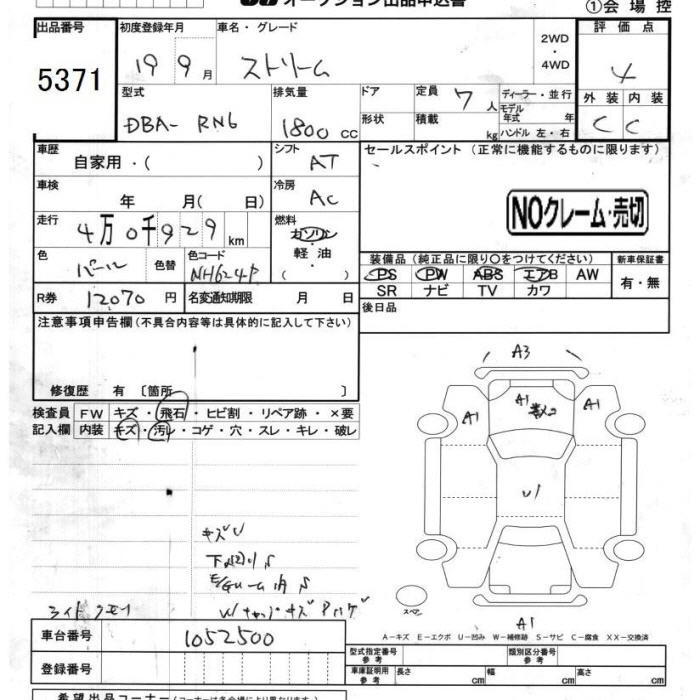 オークション出品申込書
①会場控
出品番号
5371
初度登録年月
19 9月
車名・グレード
ストリーム
2WD
・
4WD
評価点
4
外装 内装
C C
型式
DBA- RN6
排気量
1800 cc
ドア
形状
定員 7人
積載 kg
ディーラー・並行
モデル
年式 年
ハンドル 左・右
車歴
自家用・( )
シフト
AT
車検
年 月( 日)
冷房
AC
走行
4万0千929km
燃料
ガソリン
・
軽油
( )
色
パール
色替
色コード
NH624P
R券 12070円
名変通知期限 月 日
セールスポイント(正常に機能するものに限ります)
NOクレーム・売切
装備品(純正品に限り○をつけてください)
PS PW ABS エアB AW
SR ナビ TV カワ
新車保証書
有・無
後日品
注意事項申告欄(不具合内容等は具体的に記入して下さい)
修復歴 有〔箇所 〕
検査員
記入欄
FW キズ・飛石・ヒビ割・リペア跡・×要
内装 キズ・汚レ・コゲ・穴・スレ・キレ・破レ
キズU
下回りS
E/Gルーム内S
ライトクモリ
A3
A1
A1
A1
U1
A1
スペア
A−キズ E−エクボ U−凹み W−補修跡 S−サビ C−腐食 XX−交換済
車台番号 1052500
登録番号
型式指定番号
参考
類別区分番号
参考
車庫証明用
参考
長さ cm 幅 cm 高さ cm
希望出品コーナー